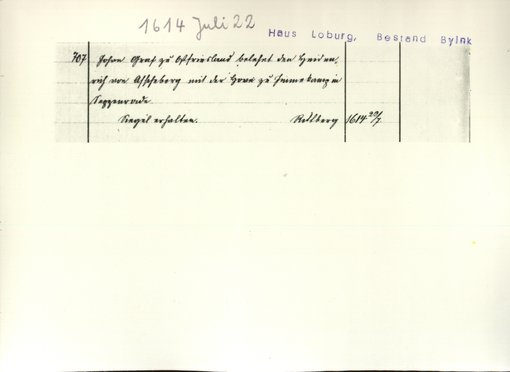 1614 Juli 22
Haus Loburg, Bestand Byink
707 Johan Graf zu Ostfriesland belehnt den Heiden-
rich von Asscheberg mit der zu in
Seppenrade.
Siegel erhalten. Rettberg 1614 22/7